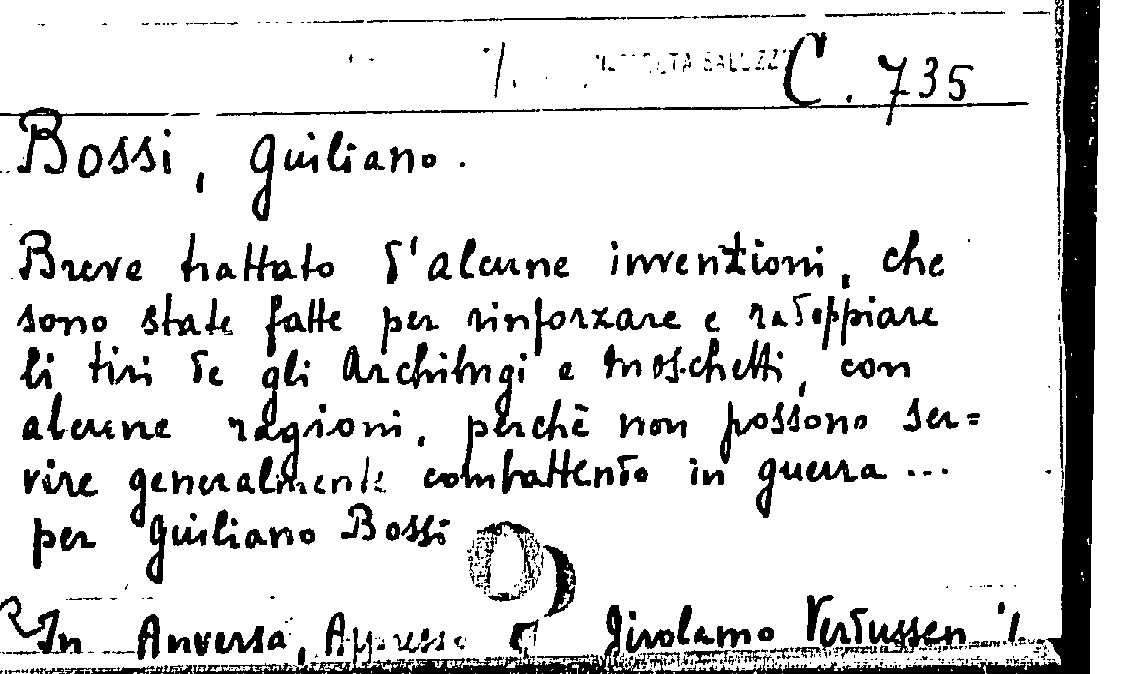 C. 735
Bossi, Guiliano.
Breve trattato d'alcune inventioni, che
sono state fatte per rinforzare e radoppiare
li tiri de gli Archibugi e Moschetti, con
alcune ragioni, perchè non possono ser=
vire generalmente combattendo in guerra ...
per Guiliano Bossi
In Anversa, Appresso Girolamo Verdussen